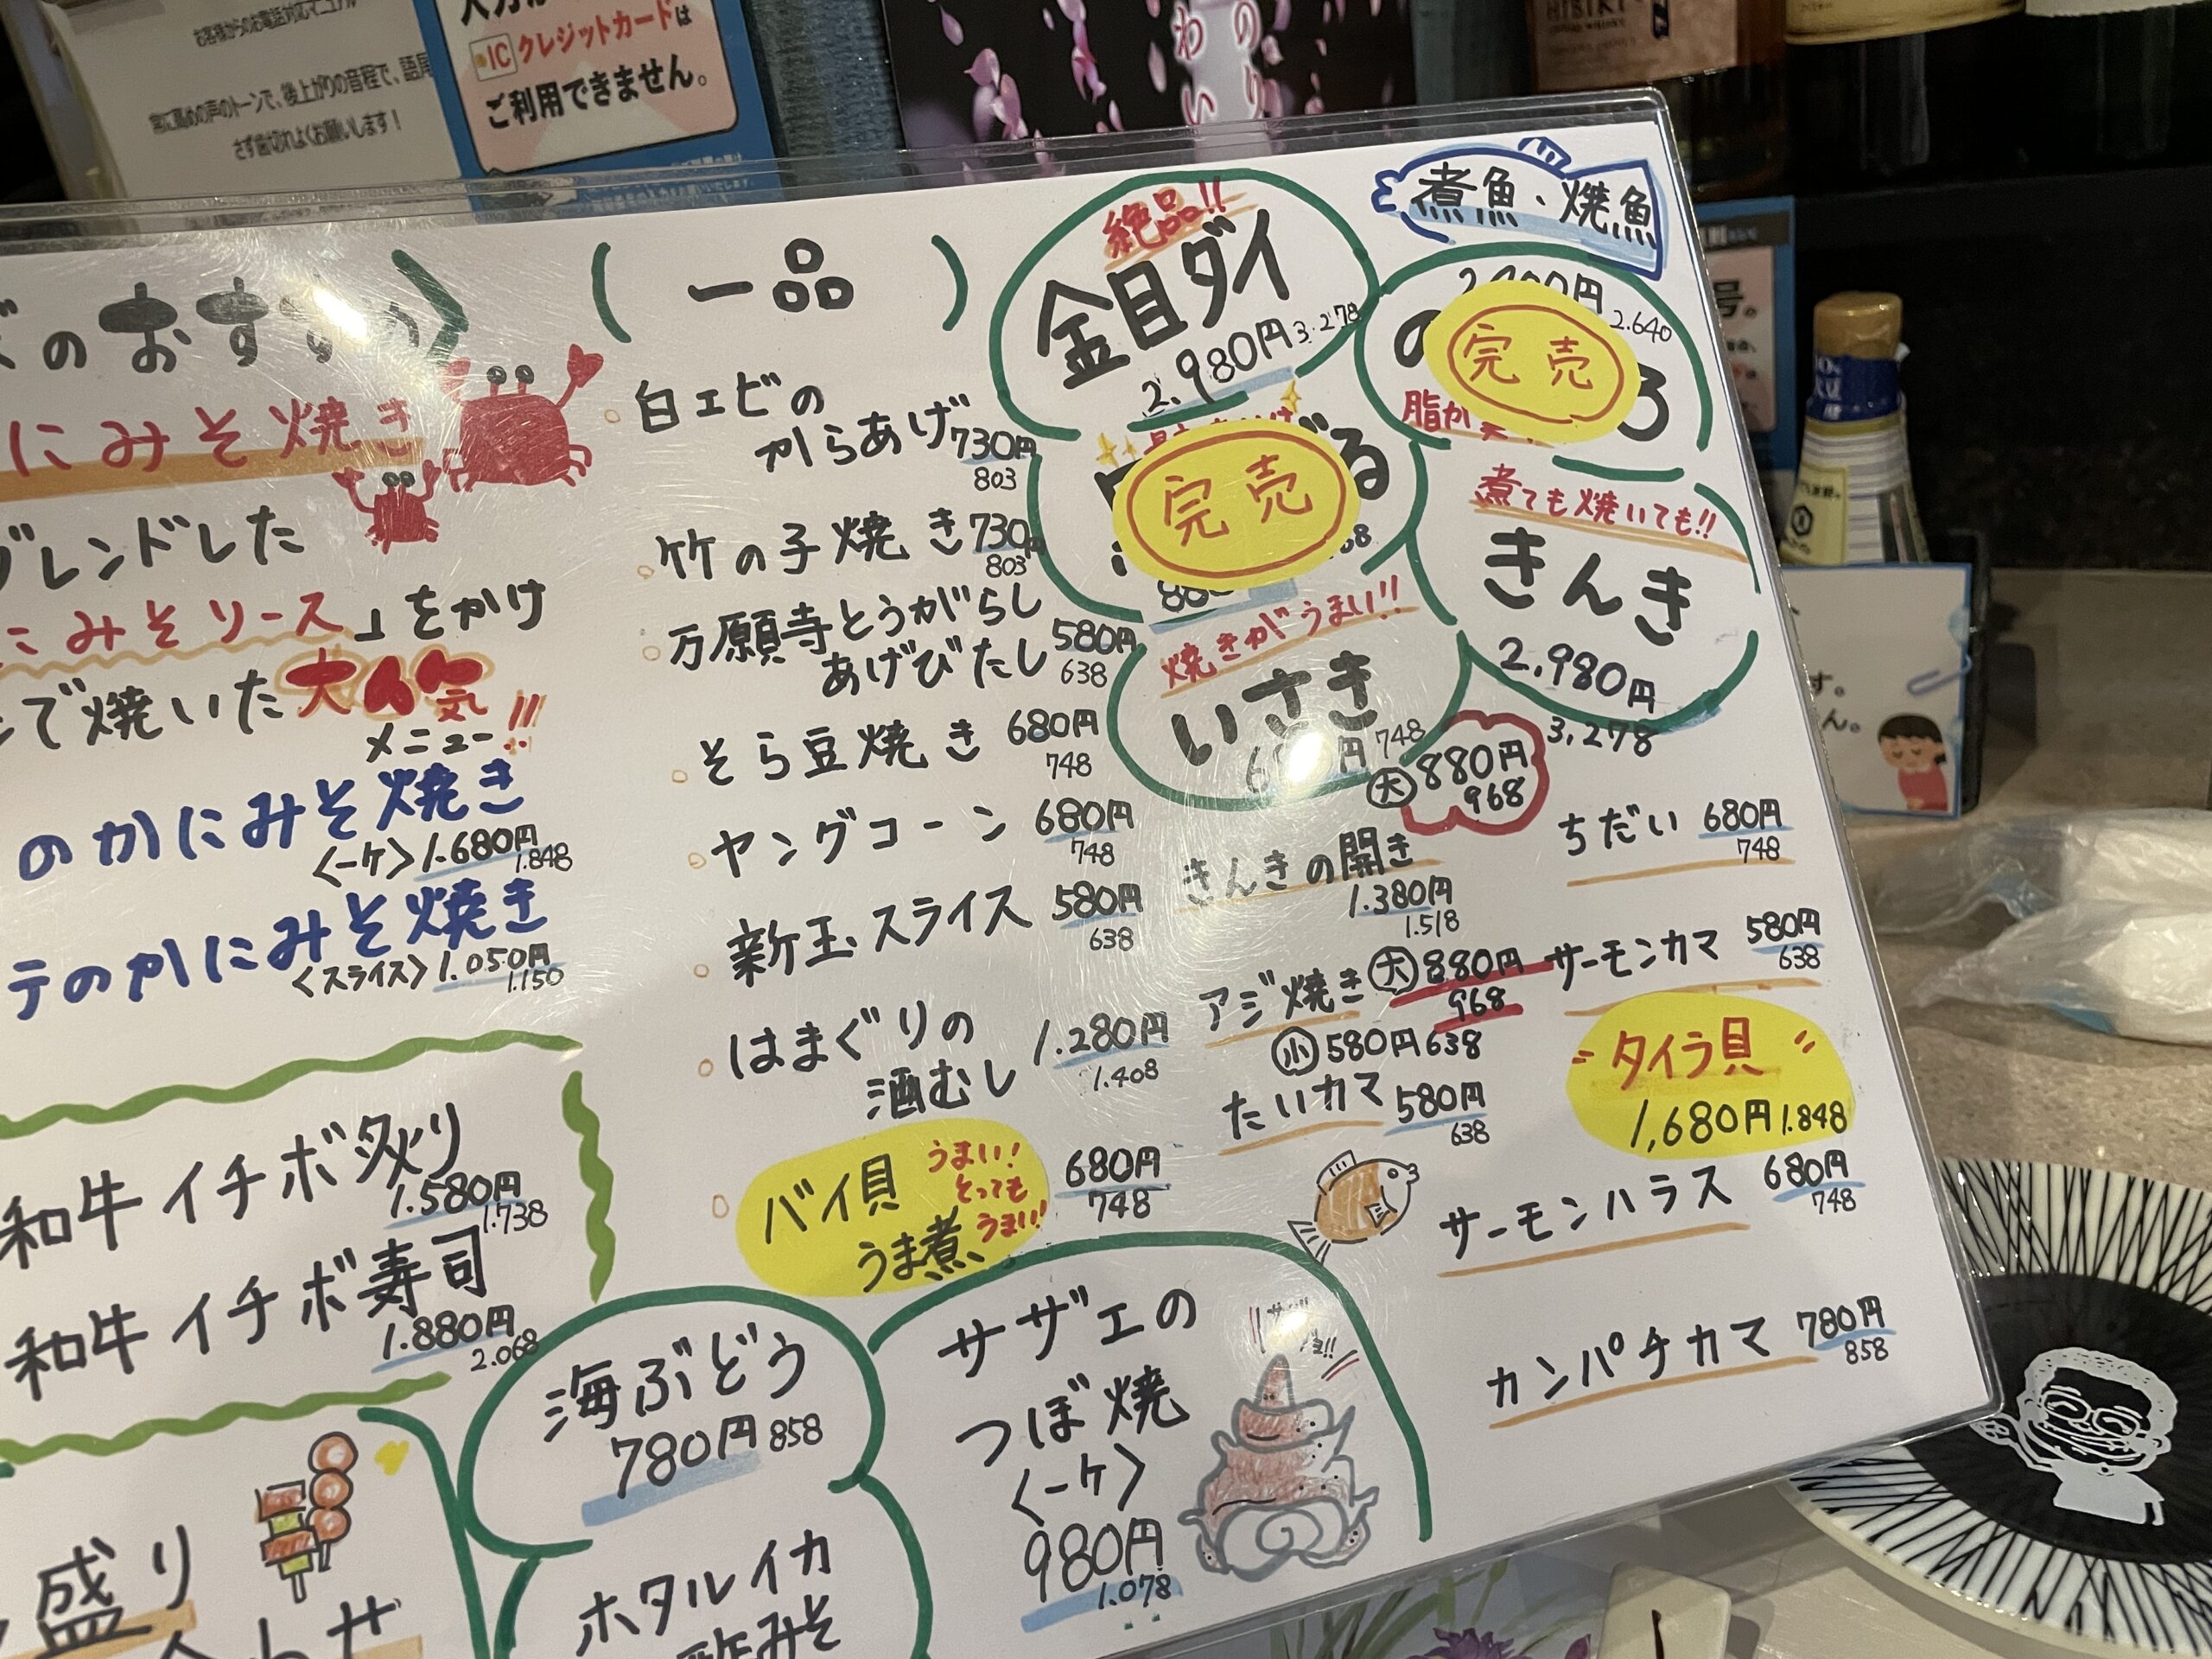 お客様からのお電話対応マニュアル
常に高めの声のトーンで、後上がりの音程で、語尾
さず歯切れよくお願いします！
IC クレジットカードは
ご利用できません。
のり
わい
HIBIKI
号。
す。
ん。
のおすすめ
にみそ焼き
ブレンドした
にみそソース」をかけ
で焼いた大人気!!
メニュー
のかにみそ焼き
〈一ケ〉1.680円
1.848
テのかにみそ焼き
〈スライス〉1.050円
1.150
和牛イチボ炙り
1.580円
1.738
和牛イチボ寿司
1.880円
2.068
盛り
一品
白エビの
からあげ 730円
803
竹の子焼き 730円
803
万願寺とうがらし
あげびたし 580円
638
そら豆焼き 680円
748
ヤングコーン 680円
748
新玉スライス 580円
638
はまぐりの
酒むし 1.280円
1.408
バイ貝
うま煮
うまい！
とっても
うまい！
680円
748
海ぶどう
780円 858
ホタルイカ
酢みそ
サザエの
つぼ焼
〈一ケ〉
980円
1.078
煮魚・焼魚
絶品!!
金目ダイ
2.980円 3.278
完売
2.640
ろ
脂が
完売
る
煮ても焼いても!!
きんき
2.980円
3,278
焼きがうまい!!
いさき
748
大 880円
968
きんきの開き
1.380円
1.518
ちだい 680円
748
アジ焼き 大 880円
968
小 580円 638
サーモンカマ 580円
638
たいカマ 580円
638
タイラ貝
1,680円 1.848
サーモンハラス 680円
748
カンパチカマ 780円
858